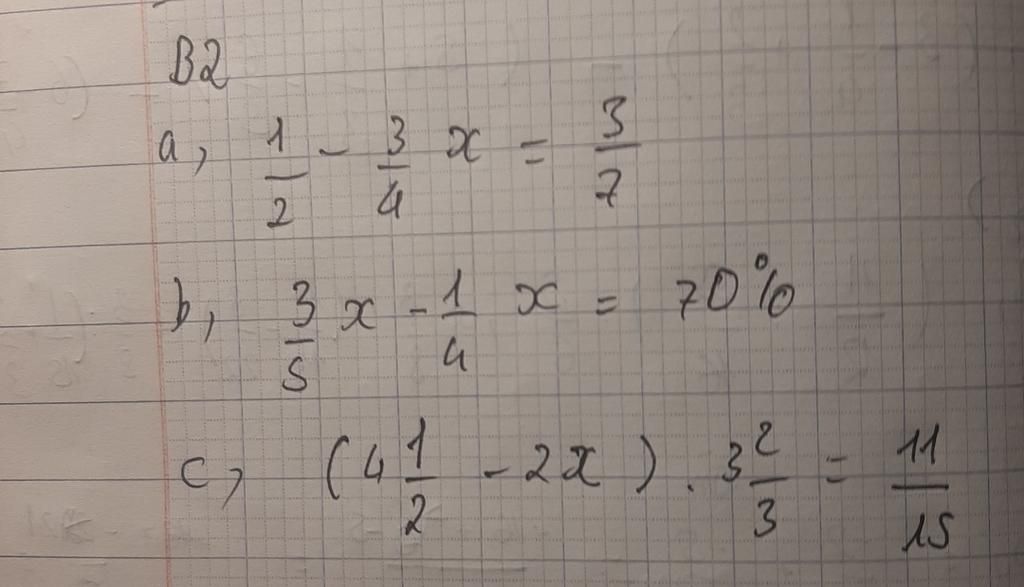 B2
a, 1/2 - 3/4 x = 3/7
b, 3/5 x - 1/4 x = 70%
c, (4 1/2 - 2x) . 3 2/3 = 11/15